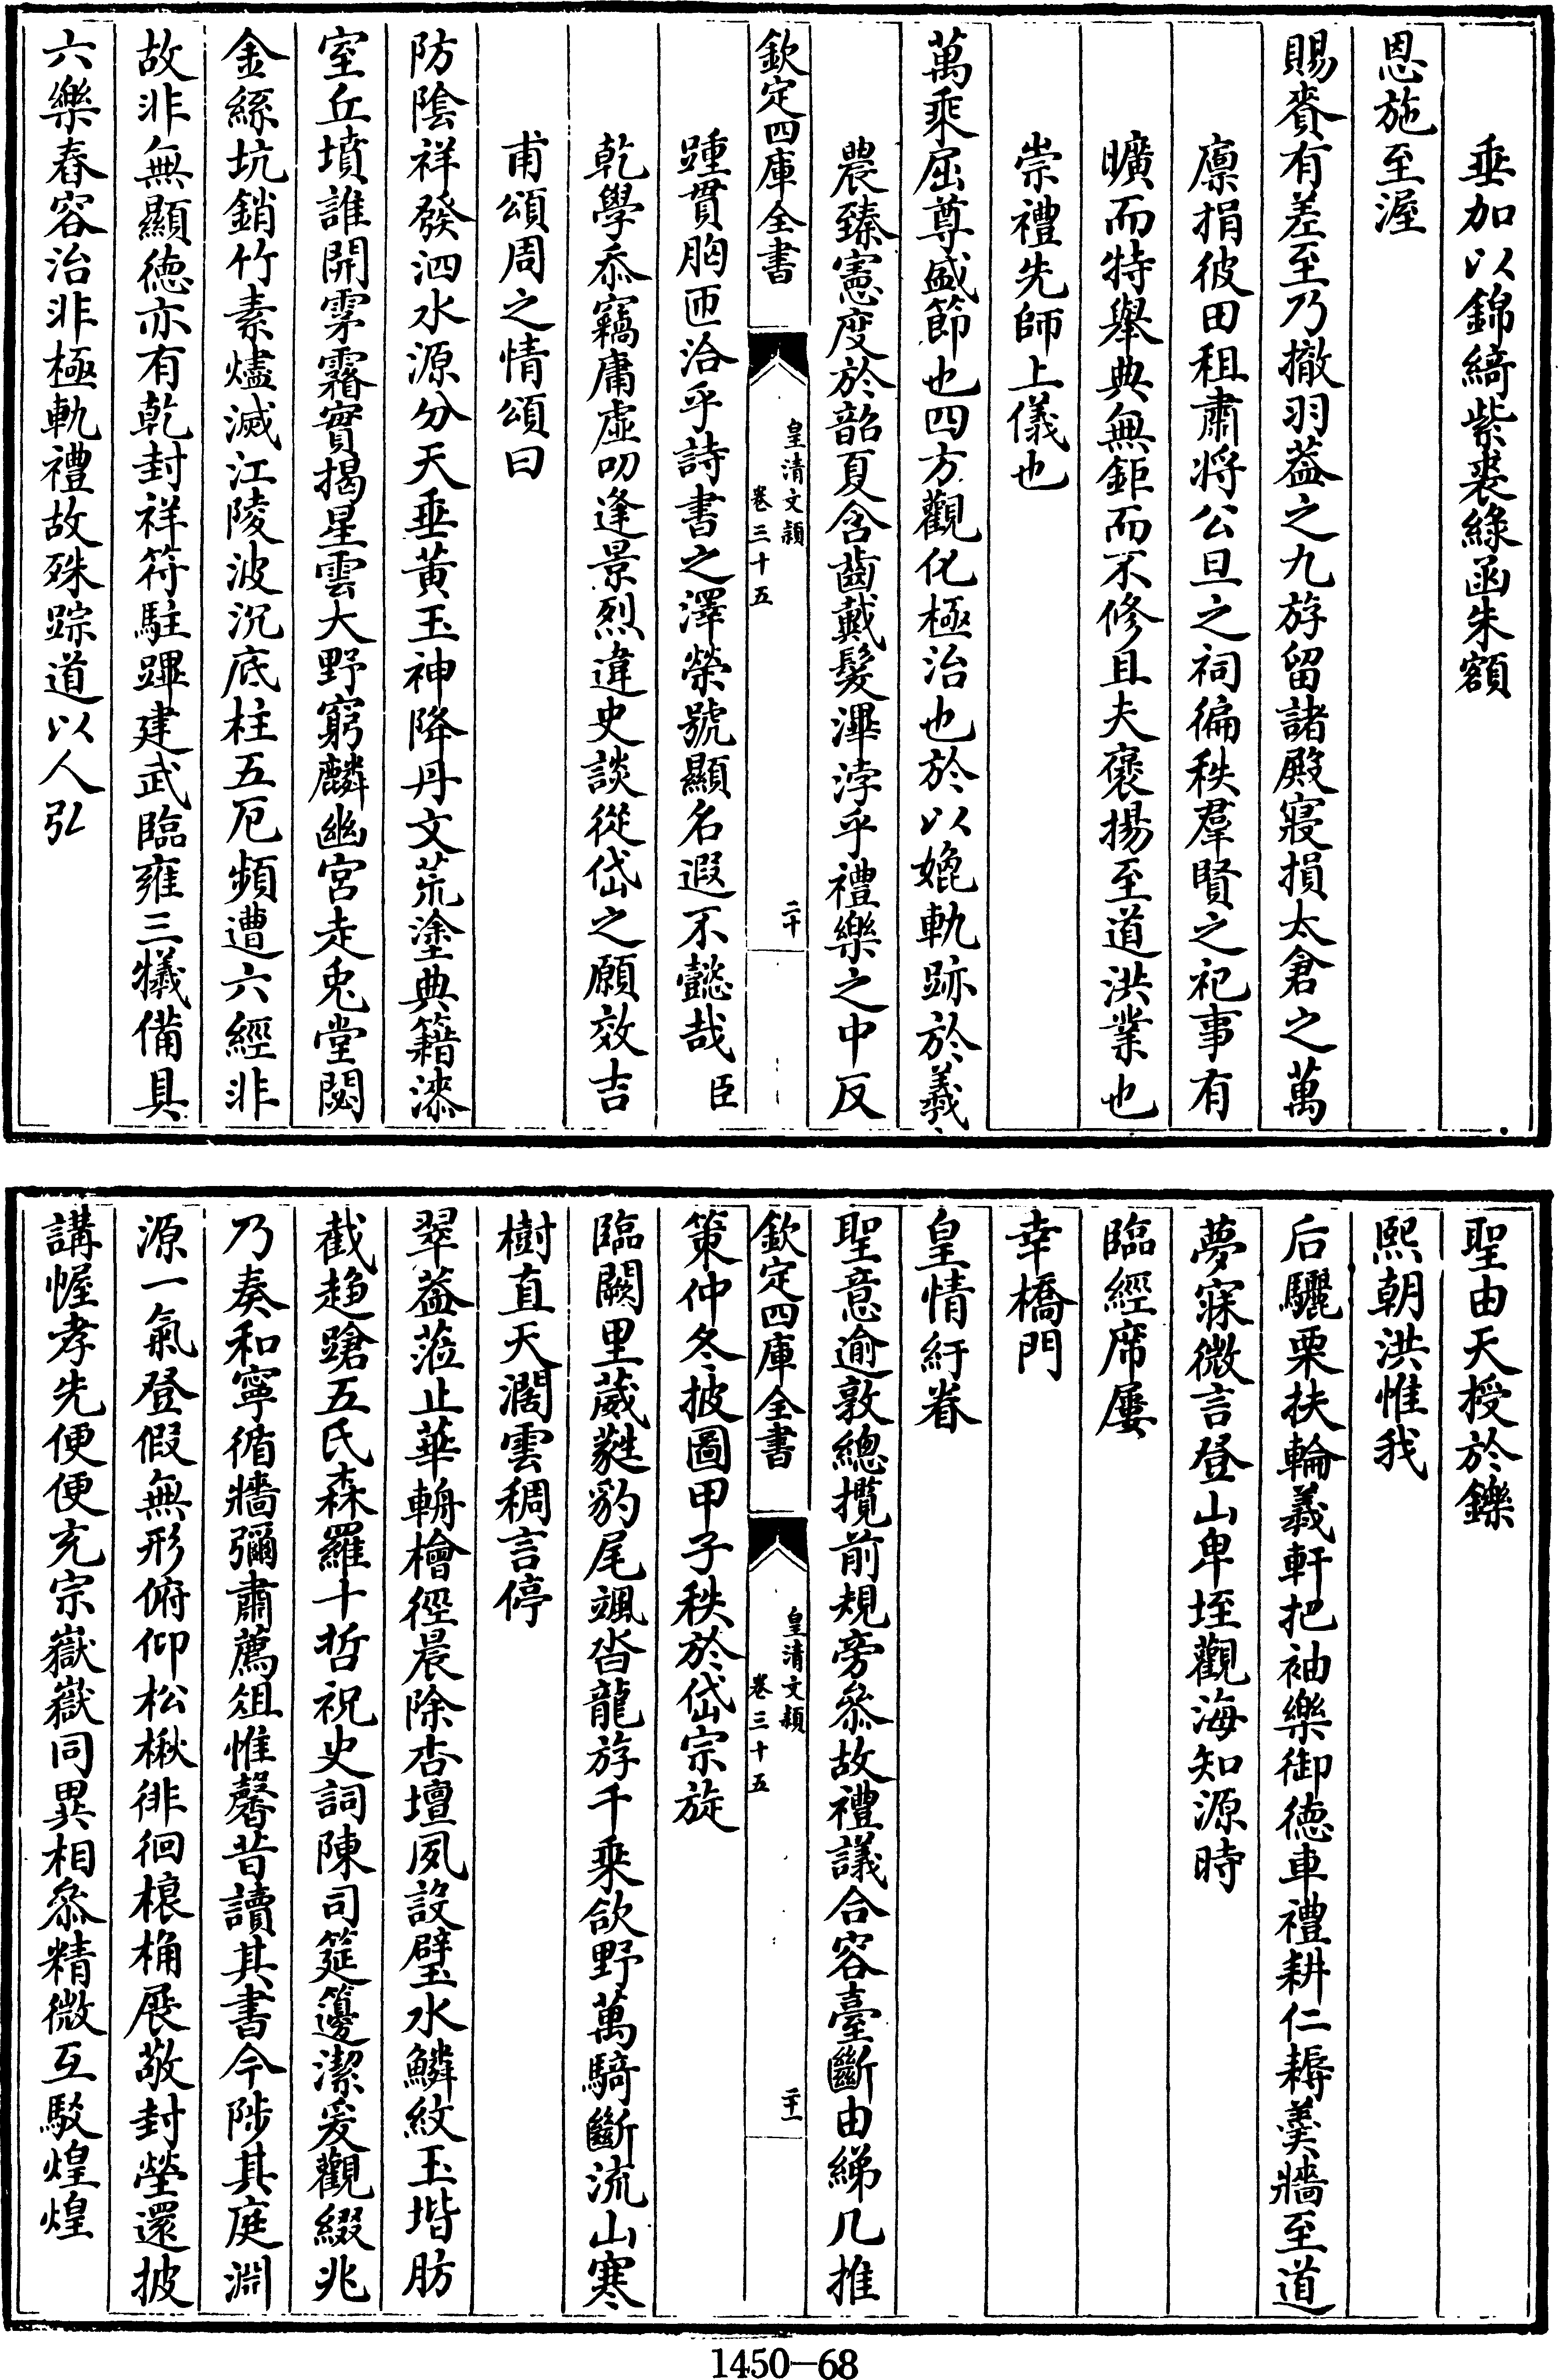 垂加以錦綺紫裘綠函朱額
恩施至渥
賜賚有差至乃撤羽葢之九斿留諸殿寢損太倉之萬
廪捐彼田租肅將公旦之祠徧秩羣賢之祀事有
曠而特舉典無鉅而不修且夫褒揚至道洪業也
崇禮先師上儀也
萬乘屈尊盛節也四方觀化極治也於以媲軌跡於羲
農臻憲度於韶夏含齒戴髮渾浡乎禮樂之中反
欽定四庫全書
皇清文穎
卷三十五
二十
踵貫胸匝洽乎詩書之澤榮號顯名遐不懿哉臣
乾學忝竊庸虛叨逢景烈違史談從岱之願效吉
甫頌周之情頌曰
防隂祥發泗水源分天垂黃玉神降丹文荒塗典籍漆
室丘墳誰開霿霿實揭星雲大野窮麟幽宮走兎堂閟
金絲坑銷竹素燼滅江陵波沉底柱五厄頻遭六經非
故非無顯徳亦有乾封祥符駐蹕建武臨雍三犧備具
六樂舂容治非極軌禮故殊踪道以人弘
聖由天授於鑠
熙朝洪惟我
后驪栗扶輪義軒把袖樂御徳車禮耕仁耨羮牆至道
夢寐微言登山卑垤觀海知源時
臨經席屢
幸橋門
皇情紆眷
聖意逾敦總攬前規旁叅故禮議合容臺斷由綈几推
欽定四庫全書
皇清文穎
卷三十五
二十一
策仲冬披圖甲子秩於岱宗旋
臨闕里葳蕤豹尾颯沓龍斿千乘欱野萬騎斷流山寒
樹直天濶雲稠言停
翠葢蒞止華輈檜徑晨除杏壇夙設璧水鱗紋玉堦肪
截趨蹌五氏森羅十哲祝史詞陳司筵籩潔爰觀綴兆
乃奏和寧循牆彌肅薦俎惟馨昔讀其書今陟其庭淵
源一氣登假無形俯仰松楸徘徊榱桷展敬封塋還披
講幄孝先便便充宗嶽嶽同異相叅精微互駁煌煌
1450—68